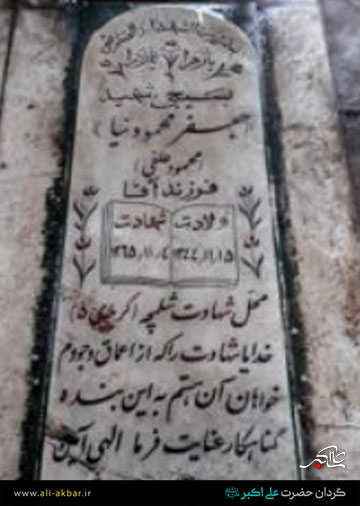 یا زهرا
بسیجی شهید
(جعفر محمودنیا)
(محمود
فرزند آقا
ولادت شهادت
۱۳۴۴٫۱۱٫۱۵ ۱۳۶۵٫۱۱٫۴
محل شهادت شلمچه (کربلای ۵)
خدایا شهادت را که از اعماق وجودم
خواهان آن هستم به این بنده
گناهکار عنایت فرما الهی آمین
www.ali-akbar.ir
گردان حضرت علی اکبر